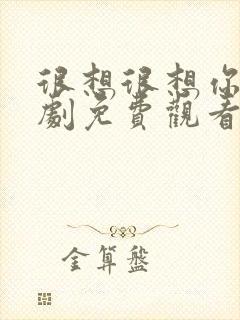 很想很想你
劇免費觀看
金算盤